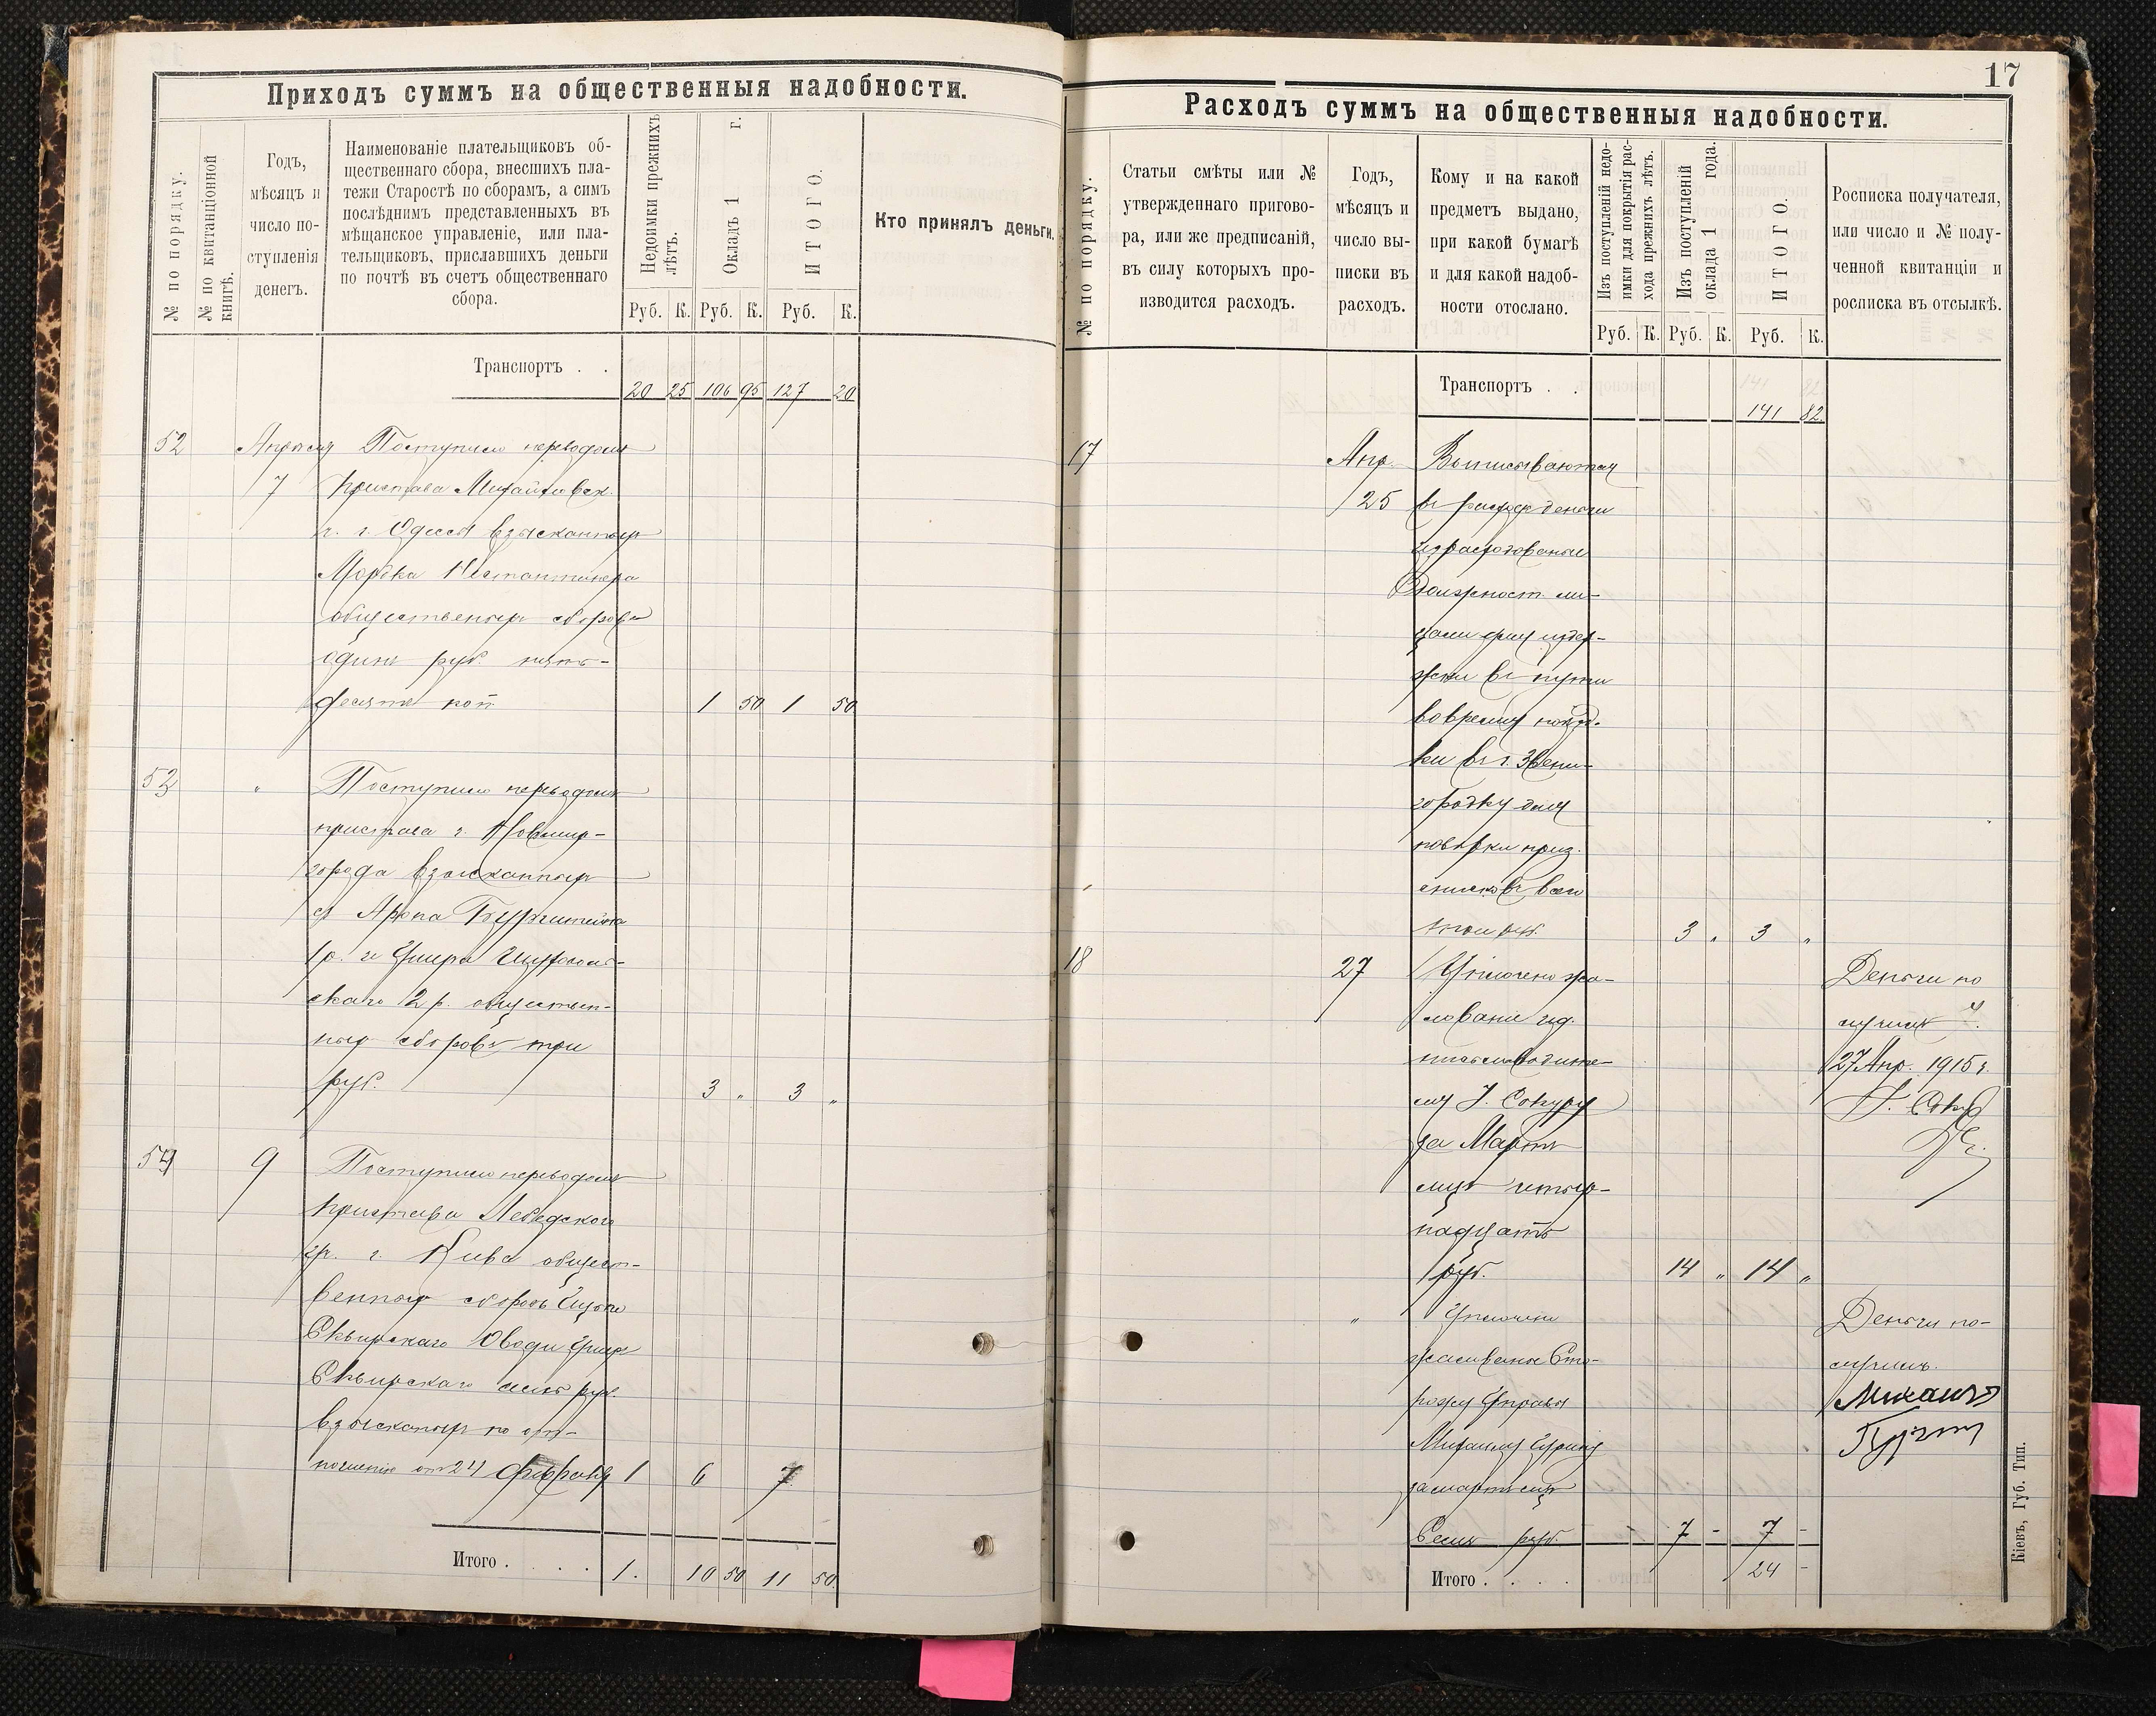 Приходъ суммъ на общественныя надобности.
№ по порядку.
№ по квитанціонной
книгѣ.
Годъ,
мѣсяцъ и
число по-
ступленія
денегъ.
Наименованіе плательщиковъ об-
щественнаго сбора, внесшихъ пла-
тежи Старостѣ по сборамъ, а симъ
послѣднимъ представленныхъ въ
мѣщанское управленіе, или пла-
тельщиковъ, приславшихъ деньги
по почтѣ въ счетъ общественнаго
сбора.
Недоимки прежнихъ
лѣтъ.
Окладъ 1 г.
ИТОГО.
Кто принялъ деньги.
Руб. К. Руб. К. Руб. К.
Транспортъ . .
20 25 106 95 127 20
52 Апрѣля Поступило переводомъ
7 Пристава Михайловск.
ч. г. Одессы взысканныхъ
Мордка
общественныхъ сборовъ
одинъ руб. пять-
десятъ коп 1 50 1 50
53 " Поступило переводомъ
пристава г. Новомир-
города взысканныхъ
съ Арона Бурштейна
1 р. и
скаго 2 р. обществен-
ныхъ сборовъ три
руб. 3 " 3 "
54 9 Поступило переводомъ
Пристава Лебедскаго
г. Кіева общест-
венныхъ сборовъ Ицько
Сквирскаго
Сквирскаго семь руб.
взысканныхъ по от-
ношенію от 24 Февраля 1 6 7
Итого . . . . 1. 10 50 11 50
17
Расходъ суммъ на общественныя надобности.
№ по порядку.
Статьи смѣты или №
утвержденнаго пригово-
ра, или же предписаній,
въ силу которыхъ про-
изводится расходъ.
Годъ,
мѣсяцъ и
число вы-
писки въ
расходъ.
Кому и на какой
предметъ выдано,
при какой бумагѣ
и для какой надоб-
ности отослано.
Изъ поступленій недо-
имки для покрытія рас-
хода прежнихъ лѣтъ.
Изъ поступленій
оклада 1 года.
ИТОГО.
Росписка получателя,
или число и № полу-
ченной квитанціи и
росписка въ отсылкѣ.
Руб. К. Руб. К. Руб. К.
Транспортъ . .
141 82
17 Апр. Выписываются
25 въ расходъ деньги
израсходованые
Должност. ли-
цами издер-
жки въ пути
вовремя поѣзд-
ки въ г. Звени-
городку для
повѣрки приз.
списковъ всего
три руб. 3 " 3 "
18 27 Уплочено жа-
лованіе
письмоводите-
лю Сокуру
за Мартъ
мцъ четыр-
надцать
руб. 14 " 14 "
Деньги по
лучилъ
27 Апр. 1915 г.
" Уплочено
жалованье Сто-
рожу Управы
Михаилу
за мартъ мцъ
Семь руб. 7 - 7 -
Деньги по-
лучилъ.
Михаилъ
Итого . . . . 24 -
Кіевъ, Губ. Тип.